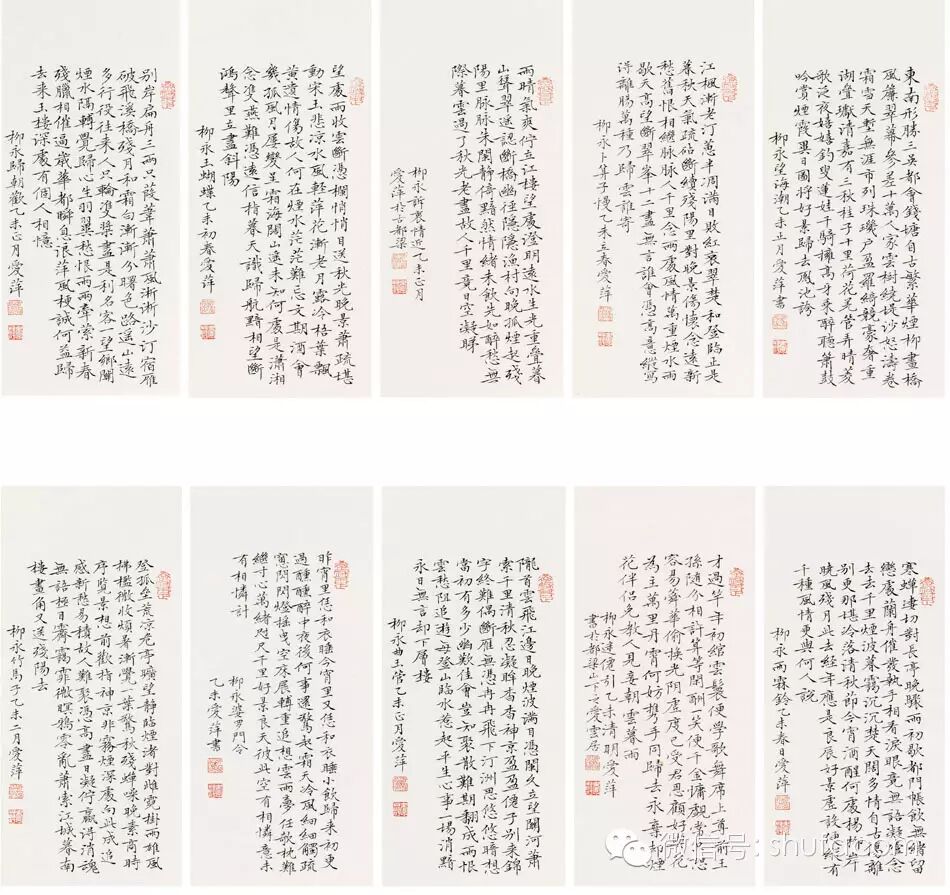 東南形勝三吳都會錢塘自古繁華煙柳畫橋
風簾翠幕參差十萬人家雲樹繞堤沙怒濤卷
霜雪天塹無涯市列珠璣戶盈羅綺競豪奢重
湖疊巘清嘉有三秋桂子十里荷花羌管弄晴菱
歌泛夜嬉嬉釣叟蓮娃千騎擁高牙乘醉聽簫鼓
吟賞煙霞異日圖將好景歸去鳳池誇
柳永望海潮乙未正月愛萍書
江楓漸老汀蕙半凋滿目敗紅衰翠楚客登臨正是
暮秋天氣疏砧斷續殘陽里對晚景傷懷念遠新
愁舊恨相繼脈脈人千里念兩處風情萬重煙水雨
歇天高望斷翠峯十二盡無言誰會憑高意縱寫
得離腸萬種乃歸雲誰寄
柳永卜算子慢乙未立春愛萍
雨晴氣爽佇立江樓望處澄明遠水生光重疊暮
山聳翠遙認斷橋幽徑隱隱漁村向晚孤煙起殘
陽里脈脈朱闌靜倚黯然情緒未飲先如醉愁無
際暮雲過了秋光老盡故人千里竟日空凝睇
柳永訴衷情近乙未正月
愛萍於古都梁
望處雨收雲斷憑欄悄悄目送秋光晚景蕭疏堪
動宋玉悲涼水風輕萍花漸老月露冷梧葉飄
黃遣情傷故人何在煙水茫茫難忘文期酒會
幾孤風月屢變星霜海闊山遙未知何處是瀟湘
念雙燕難憑遠信指暮天識歸航黯相望斷
鴻聲里立盡斜陽
柳永玉蝴蝶乙未初春愛萍
別岸扁舟三兩只葭葦蕭蕭風淅淅沙汀宿雁
破飛溪橋殘月和霜白漸漸分曙色路遙山遠
多行役往來人只輪雙槳盡是利名客一望鄉關
煙水隔轉覺歸心生羽翼愁恨雨雨牽縈新春
殘臘相催逼歲華都瞬息浪萍風梗誠何益歸
去來玉樓深處有個人相憶
柳永歸朝歡乙未正月愛萍
寒蟬凄切對長亭晚驟雨初歇都門帳飲無緒留
戀處蘭舟催發執手相看淚眼竟無語凝噎念
去去千里煙波暮靄沉沉楚天闊多情自古傷離
別更那堪冷落清秋節今宵酒醒何處楊柳岸
曉風殘月此去經年應是良辰好景虛設便縱有
千種風情更與何人說
柳永雨霖鈴乙未春日愛萍
才過笄年初綰雲鬟便學歌舞席上尊前王
孫隨分相許算等閑酬一笑便千金慵覷常只恐
容易蕣華偷換光陰虛度已受君恩顧好與花
為主萬里丹霄何妨攜手同歸去永棄卻煙
花伴侶免教人見妾朝雲暮雨
柳永迷仙引乙未清明愛萍
書於都梁山下之愛雲居
隴首雲飛江邊日晚煙波滿目憑闌久立望關河蕭
索千里清秋忍凝眸杳杳神京盈盈仙子別來錦
字終難偶斷雁無憑冉冉飛下汀洲思悠悠暗想
當初有多少幽歡佳會豈知聚散難期翻成雨恨
雲愁阻追遊每登山臨水惹起平生心事一場消黯
永日無言卻下層樓
柳永曲玉管乙未正月愛萍
昨宵里恁和衣睡今宵里又恁和衣睡小飲歸來初更
過醺醺醉中夜後何事還驚起霜天冷風細細觸疏
窗閃閃燈搖曳空床展轉重追想雲雨夢任攲枕難
繼寸心萬緒咫尺千里好景良天彼此空有相憐意未
有相憐計
柳永婆羅門令
乙未愛萍書
登孤壘荒涼危亭曠望靜臨煙渚對雌霓掛雨雄風
拂檻微收煩暑漸覺一葉驚秋殘蟬噪晚素商時
序覽景想前歡指神京非霧煙深處向此成追
感新愁易積故人難聚憑高盡日凝佇贏得消魂
無語極目霽靄霏微暝鴉零亂蕭索江城暮南
樓畫角又送殘陽去
柳永竹馬子乙未二月愛萍
微信号: